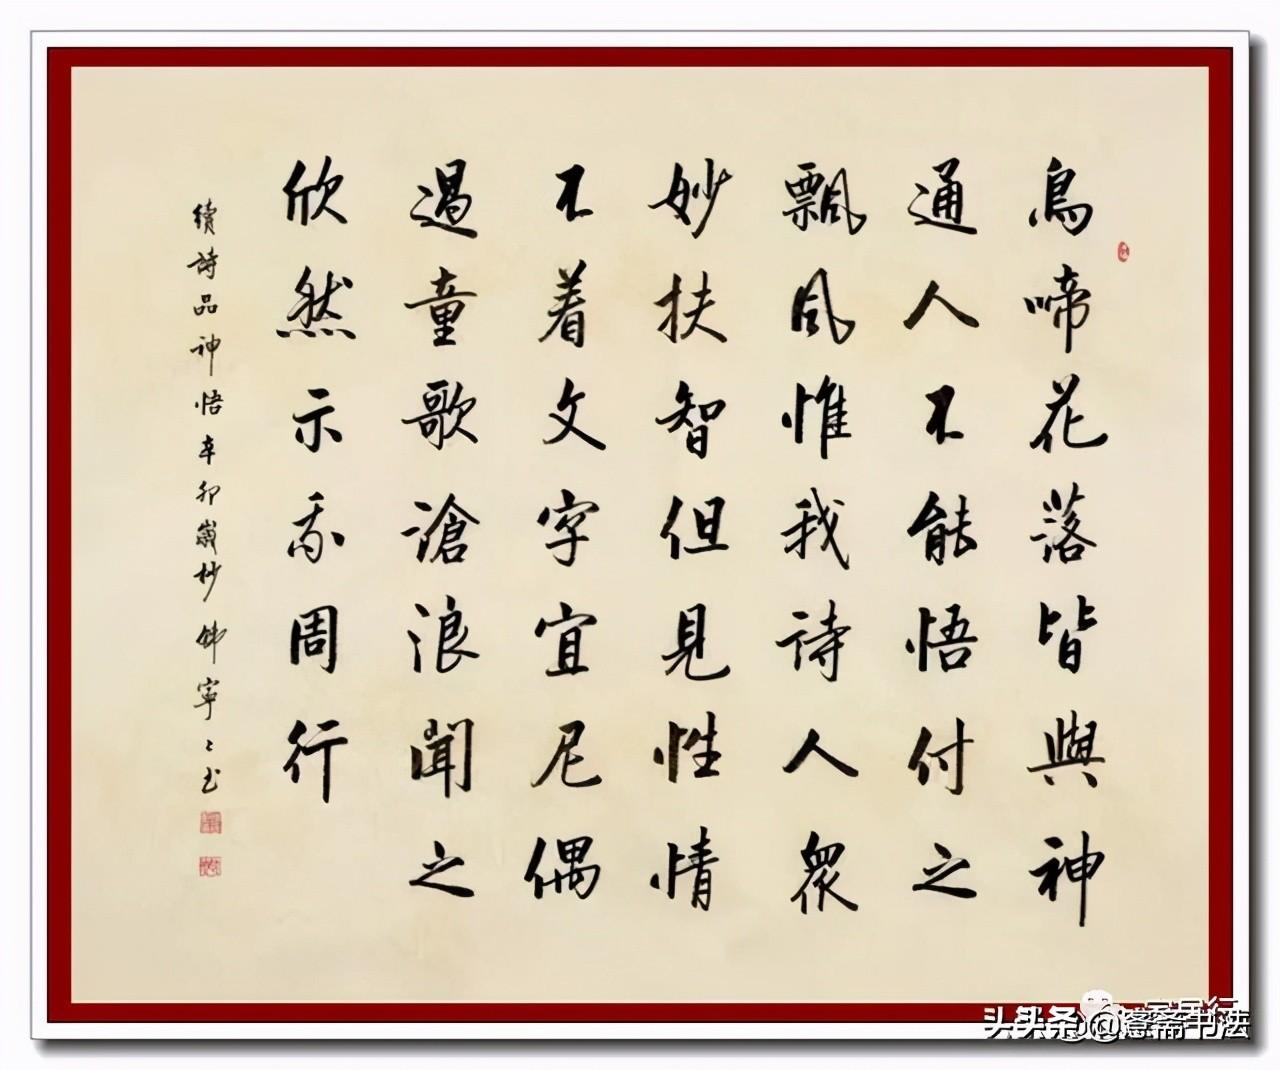 鳥啼花落皆與神
通人不能悟付之
飄風惟我詩人眾
妙扶智但見性情
不着文字宣尼偶
過童歌滄浪聞之
欣然示我周行
續詩品神悟辛卯歲杪寧〻书
头条@斋书法